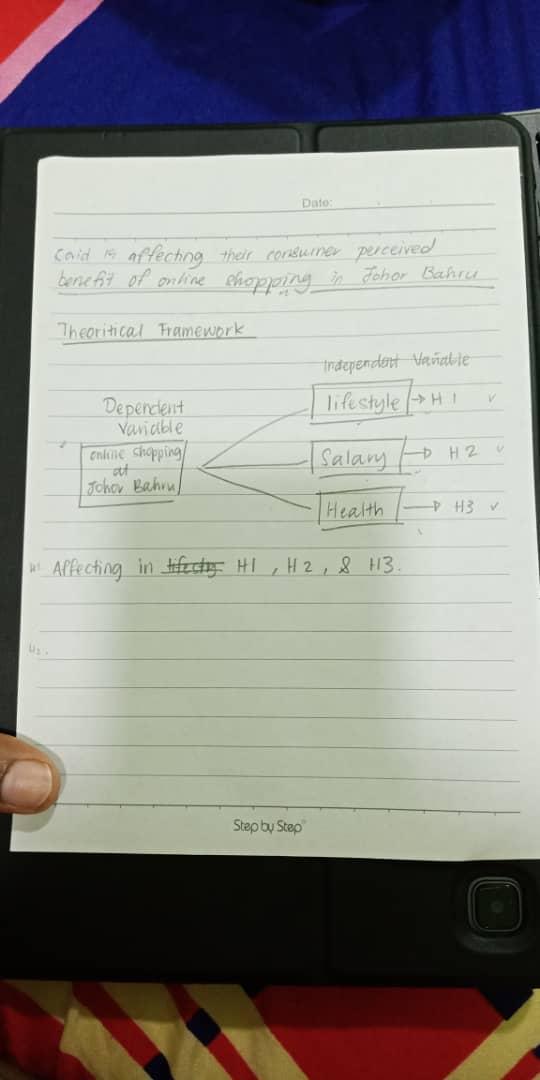 Date:
Coid 19 affecting their consumer perceived
benefit of online shopping in Johor Bahru
Theoritical Framework
Independent Variable
Dependent
Variable
lifestyle → H1 ✓
online shopping
at
Johor Bahru
Salary → H2 ✓
Health → H3 ✓
H1. Affecting in H1, H2, & H3.
H2.
Step by Step